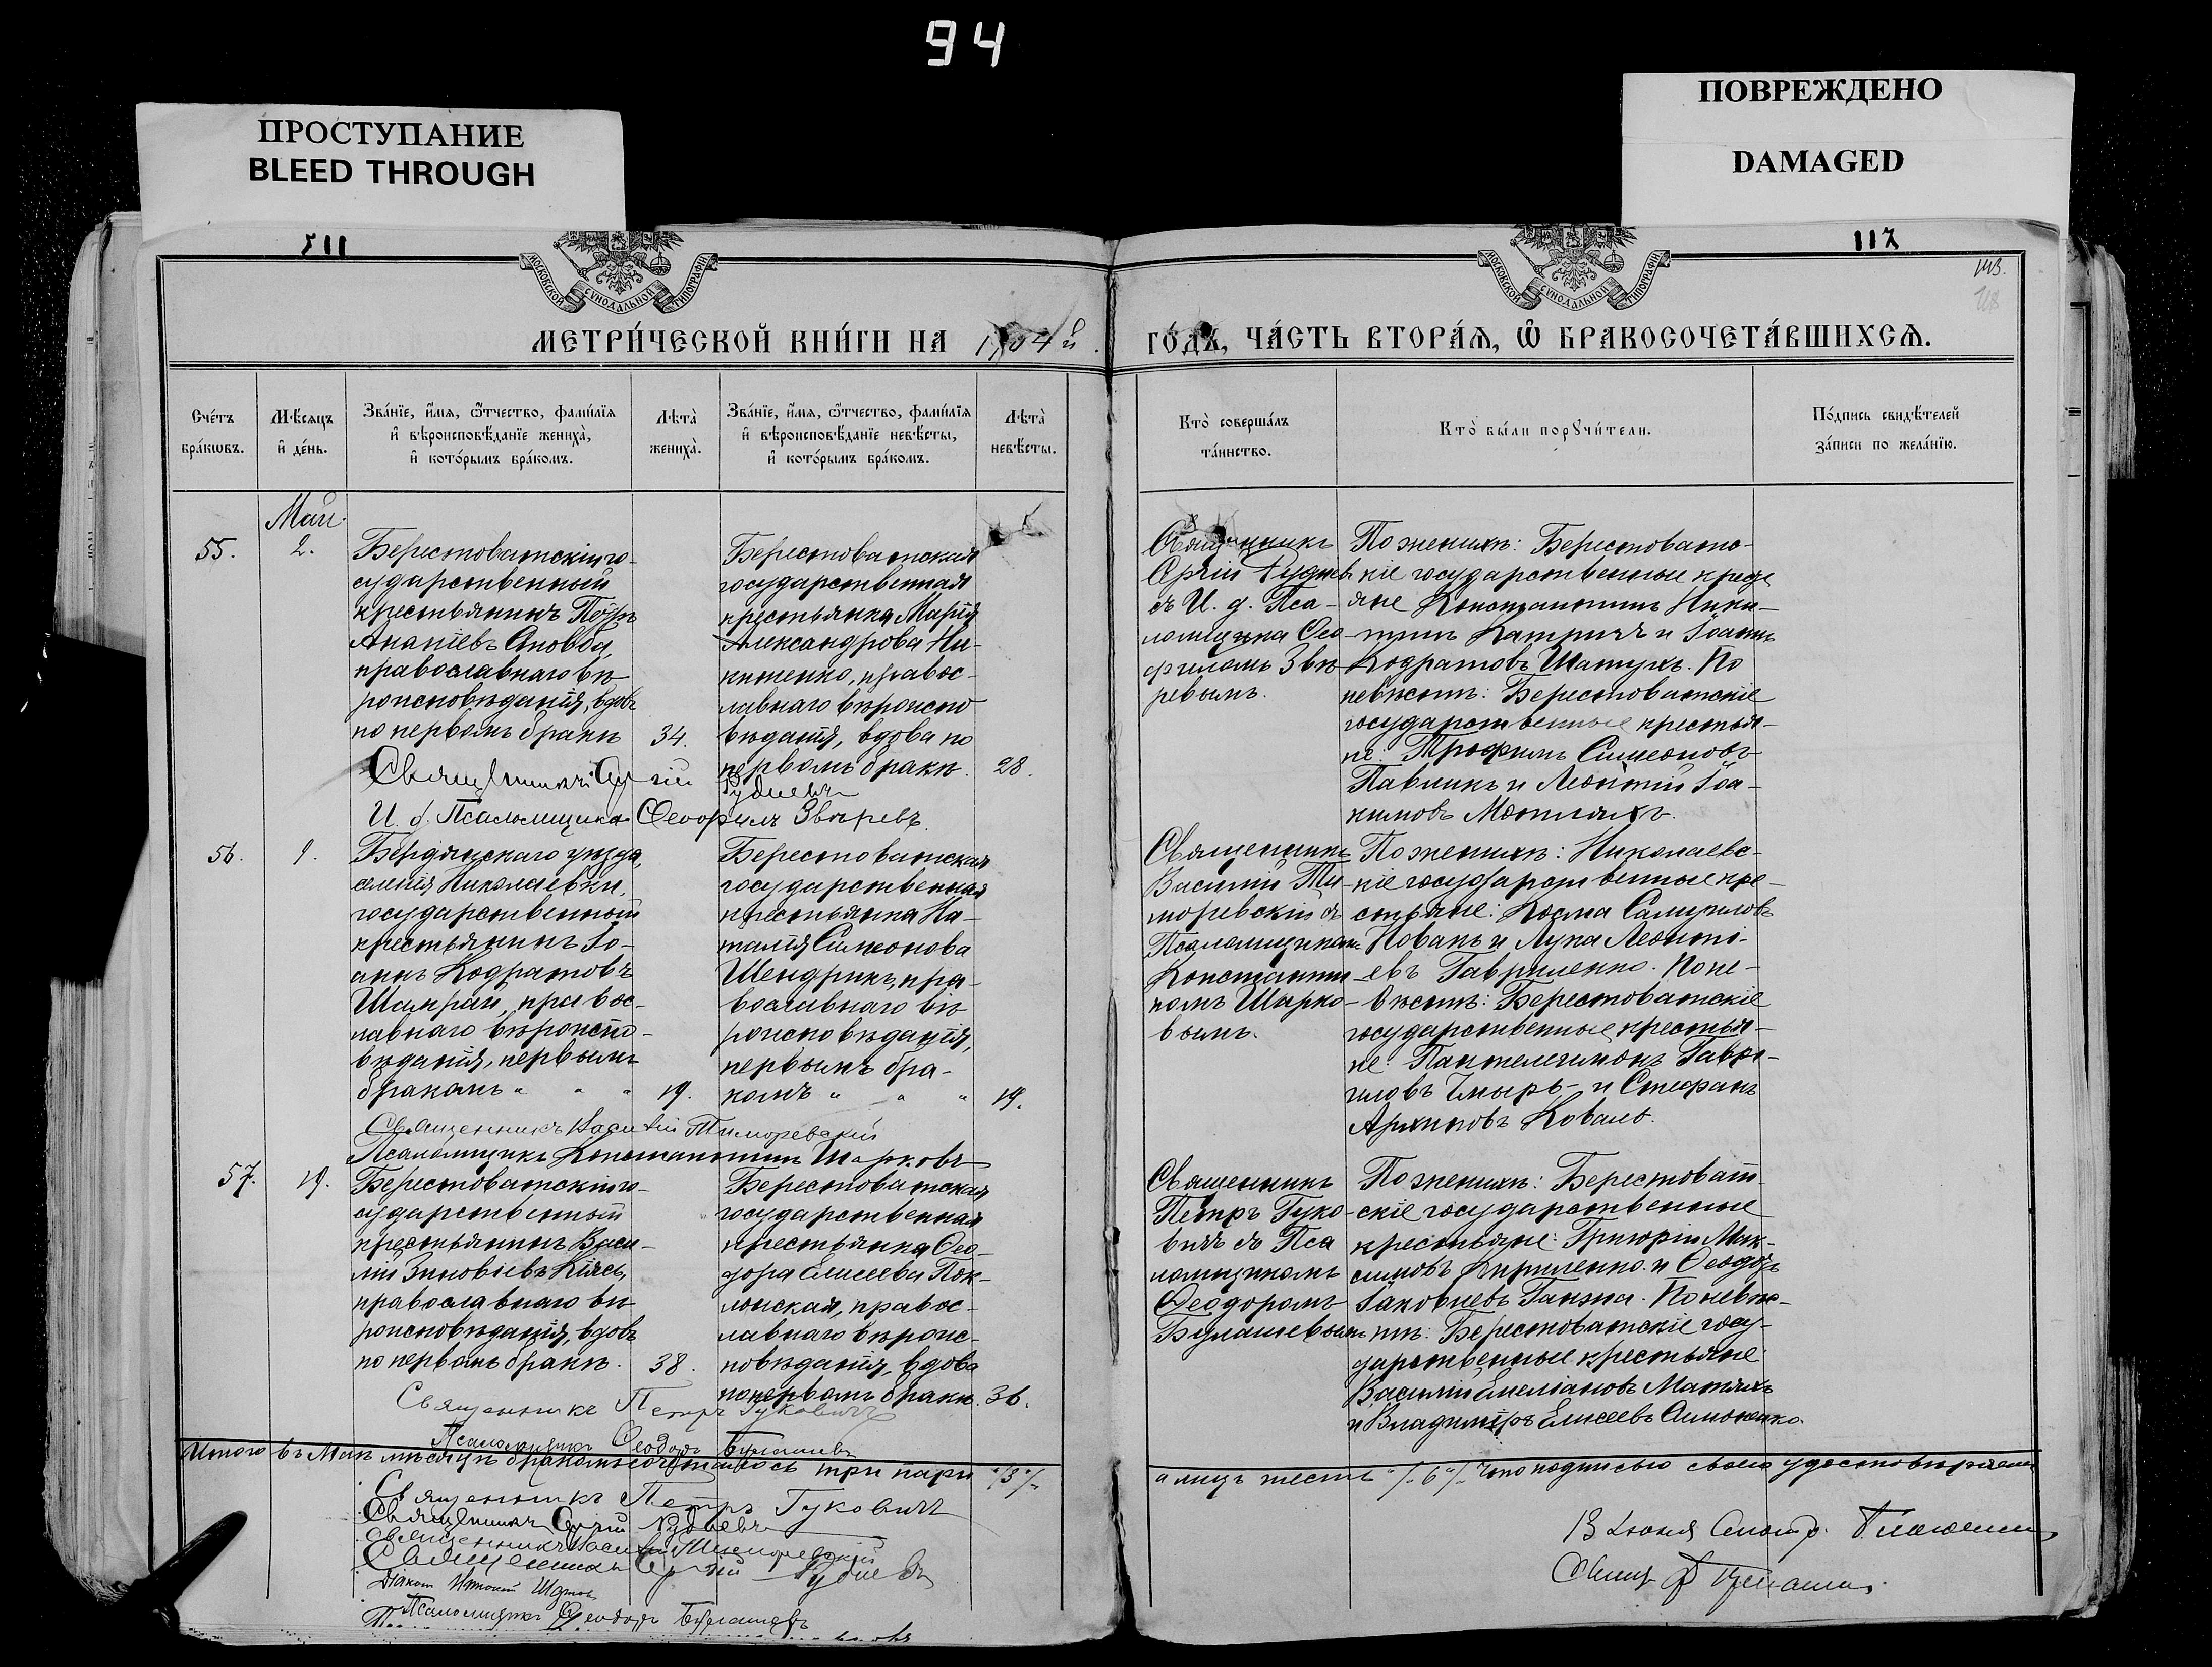 94
ПРОСТУПАНИЕ
BLEED THROUGH
ПОВРЕЖДЕНО
DAMAGED
117
143.
118
МОСКОВСКОЙ СѴНОДАЛЬНОЙ ТИПОГРАФІИ
МОСКОВСКОЙ СѴНОДАЛЬНОЙ ТИПОГРАФІИ
МЕТРИ́ЧЕСКОЙ КНИ́ГИ НА 1904й
ГО́ДЪ, ЧА́СТЬ ВТОРА́Я, Ѿ БРАКОСОЧЕТА́ВШИХСѦ.
Сче́тъ
бра́кѡвъ.
Мѣ́сяцъ
и҆ де́нь.
Зва́нїе, и҆́мя, ѻ҆́тчество, фами́лїя
и҆ вѣроисповѣ́данїе жениха̀,
и҆ кото́рымъ бра́комъ.
Лѣта̀
жениха̀.
Зва́нїе, и҆́мя, ѻ҆́тчество, фами́лїя
и҆ вѣроисповѣ́данїе невѣ́сты,
и҆ кото́рымъ бра́комъ.
Лѣта̀
невѣ́сты.
Кто̀ соверша́лъ
та́инство.
Кто̀ бы́ли порꙋчи́тели.
По́дпись свидѣ́телей
за́писи по жела́нїю.
Май.
55.
2.
Берестоватскій го-
сударственный
крестьянинъ Петръ
Ананіевъ
православнаго вѣ-
роисповѣданія, вдовъ
по первомъ бракѣ
34.
Берестоватская
государственная
крестьянка Марія
Александрова Ни-
китенко, правос-
лавнаго вѣроиспо
вѣданія, вдова по
первомъ бракѣ.
28.
Священникъ Сергій Рудневъ
И. д. Псаломщика Ѳеофилъ Звѣревъ.
Священникъ
Сергій Рудневъ
съ И. д. Пса-
ломщика Ѳео-
филомъ Звѣ-
ревымъ.
По женихѣ: Берестоватс-
кіе государственные кресть
яне Константинъ Ники-
тинъ Катричъ и Іоаннъ
Кодратовъ Шатухъ. По
невѣстѣ: Берестоватскіе
государственные крестья-
не: Трофимъ Симеоновъ
Павликъ и Леонтій Іоа-
кимовъ
56.
9.
Бердянскаго уѣзда,
селенія Николаевки,
государственный
крестьянинъ Іо-
аннъ Кодратовъ
Шапран, правос-
лавнаго вѣроиспо-
вѣданія, первымъ
бракомъ " " "
19.
Берестоватская
государственная
крестьянка На-
талія Симеонова
Шендрикъ, пра-
вославнаго вѣ
роисповѣданія,
первымъ бра-
комъ " " "
19.
Священникъ Василій Тиморевскій
Псаломщикъ Константинъ Шарковъ
Священникъ
Василій Ти-
моревскій съ
Псаломщикомъ
Константи-
номъ Шарко-
вымъ.
По женихѣ: Николаевс-
кіе государственные кре-
стьяне: Косма Самуиловъ
Кованъ и Лука Леонті-
евъ Гавриленко. По не-
вѣстѣ: Берестоватскіе
государственные крестья-
не: Пантелеимонъ Гаврі-
иловъ Чмырь- и Стефанъ
Архиповъ Коваль.
57.
19.
Берестоватскій го-
сударственный
крестьянинъ Васи-
лій Зиновіевъ Кіясь,
православнаго вѣ-
роисповѣданія, вдовъ
по первомъ бракѣ.
38.
Берестоватская
государственная
крестьянка Ѳео-
дора Елисеева Пок-
лонская, правос-
лавнаго вѣроис-
повѣданія, вдова
по первомъ бракѣ.
36.
Священникъ Петръ Гуковичъ
Псаломщикъ Ѳеодоръ Булашевъ
Священникъ
Петръ Гуко-
вичъ съ Пса
ломщикомъ
Ѳеодоромъ
Булашевымъ
По женихѣ: Берестоват-
скіе государственные
крестьяне: Григорій Мак-
симовъ Кириленко и Ѳеодоръ
Іаковлевъ Ганжа. По невѣс-
тѣ: Берестоватскіе госу-
дарственные крестьяне
Василій Емеліановъ Матяхъ
и Владиміръ Елисеевъ Симоненко.
Итого въ Маѣ мѣсяцѣ бракомъ сочеталось три пары "/3"/.
а лицъ шесть "/.6"/. Что подписью своею удостовѣряемъ
Священникъ Петръ Гуковичъ
Священникъ Сергій Рудневъ
Священникъ Василій Тиморевскій
Священникъ Сергій Рудневъ
Псаломщикъ Ѳеодоръ Булашевъ
13 Іюня